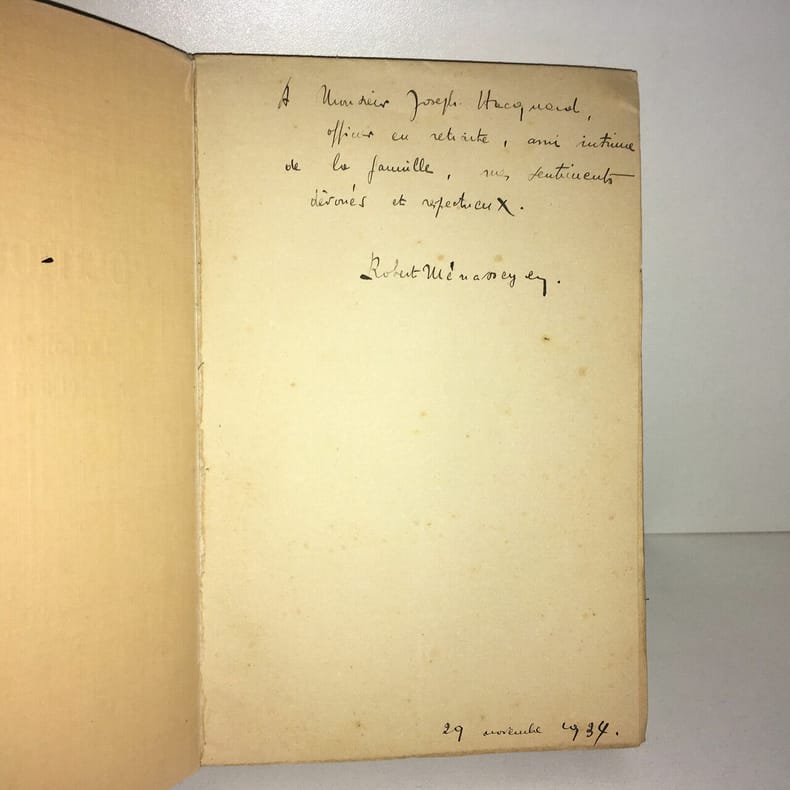 A Monsieur Joseph Hacquard,
officier en retraite, ami intime
de la famille, mes sentiments
dévoués et respectueux.
Robert Ménasseyen.
29 novembre 1934.